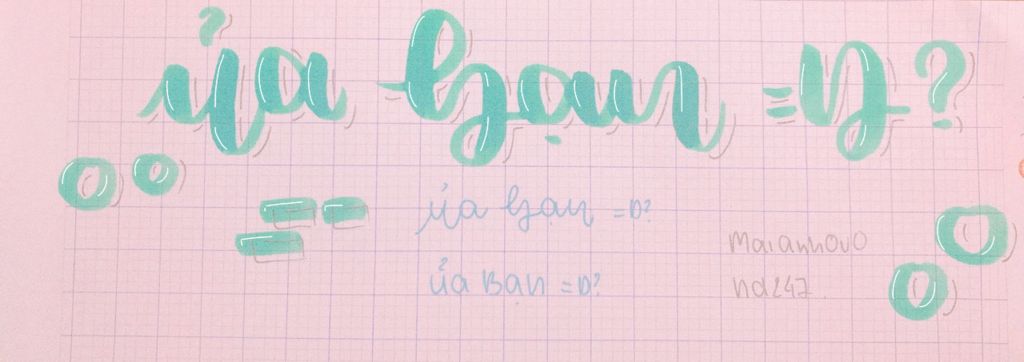 ủa bạn =D?
ủa bạn =D?
ủa Bạn =D?
Maianhovo
nd247.